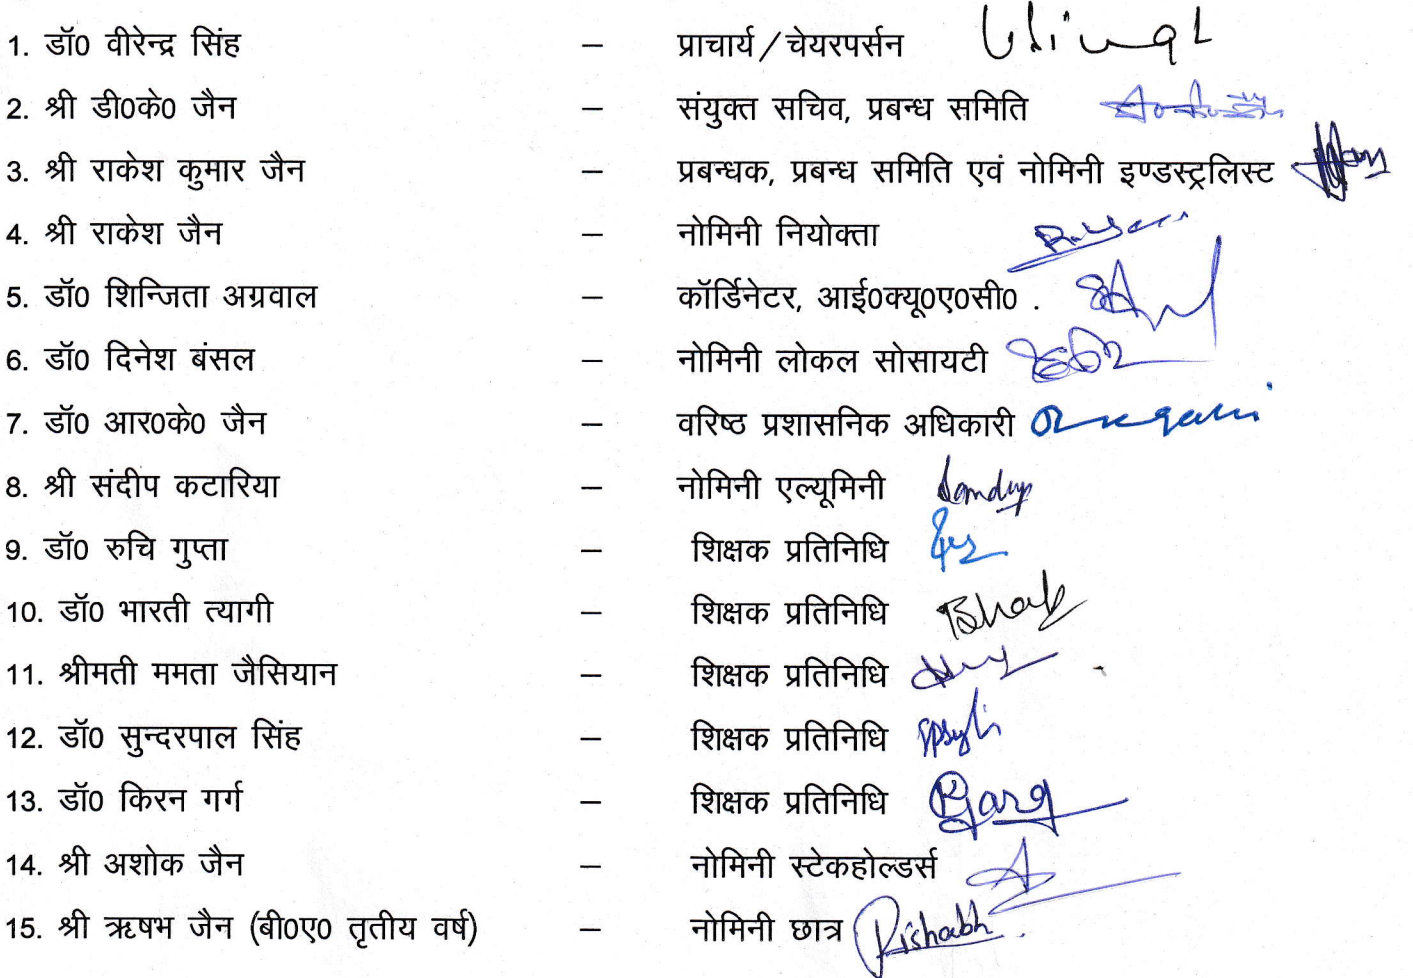 1. डॉ0 वीरेन्द्र सिंह – प्राचार्य/चेयरपर्सन
2. श्री डी0के0 जैन – संयुक्त सचिव, प्रबन्ध समिति
3. श्री राकेश कुमार जैन – प्रबन्धक, प्रबन्ध समिति एवं नोमिनी इण्डस्ट्रलिस्ट
4. श्री राकेश जैन – नोमिनी नियोक्ता
5. डॉ0 शिन्जिता अग्रवाल – कॉर्डिनेटर, आई0क्यू0ए0सी0 .
6. डॉ0 दिनेश बंसल – नोमिनी लोकल सोसायटी
7. डॉ0 आर0के0 जैन – वरिष्ठ प्रशासनिक अधिकारी
8. श्री संदीप कटारिया – नोमिनी एल्यूमिनी
9. डॉ0 रुचि गुप्ता – शिक्षक प्रतिनिधि
10. डॉ0 भारती त्यागी – शिक्षक प्रतिनिधि
11. श्रीमती ममता जैसियान – शिक्षक प्रतिनिधि
12. डॉ0 सुन्दरपाल सिंह – शिक्षक प्रतिनिधि
13. डॉ0 किरन गर्ग – शिक्षक प्रतिनिधि
14. श्री अशोक जैन – नोमिनी स्टेकहोल्डर्स
15. श्री ऋषभ जैन (बी0ए0 तृतीय वर्ष) – नोमिनी छात्र Rishabh